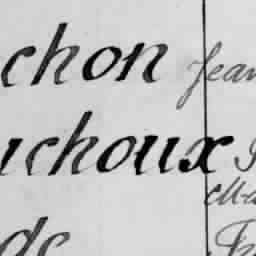 chon Jean
uchoux
de